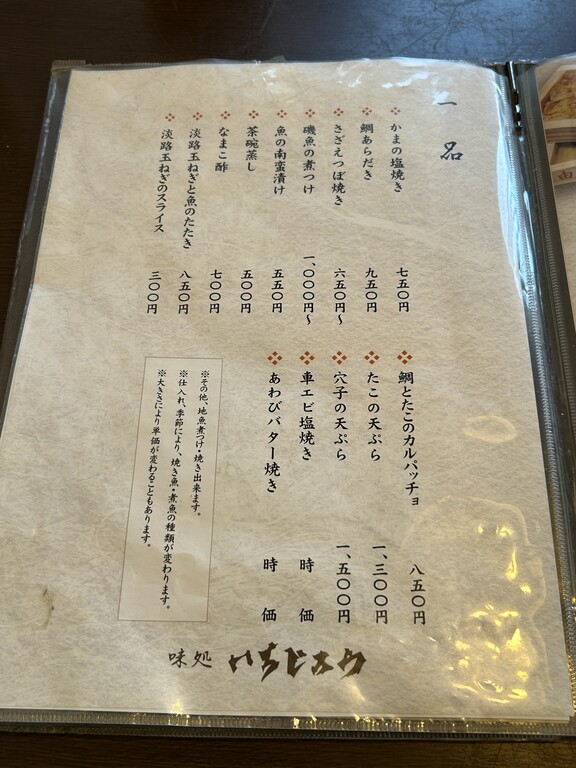 一名
かまの塩焼き 七五〇円
鯛あらだき 九五〇円
さざえつぼ焼き 六五〇円〜
磯魚の煮つけ 一、〇〇〇円〜
魚の南蛮漬け 五五〇円
茶碗蒸し 五〇〇円
なまこ酢 七〇〇円
淡路玉ねぎと魚のたたき 八五〇円
淡路玉ねぎのスライス 三〇〇円
鯛とたこのカルパッチョ 八五〇円
たこの天ぷら 一、三〇〇円
穴子の天ぷら 一、五〇〇円
車エビ塩焼き 時価
あわびバター焼き 時価
※その他、地魚煮つけ・焼き出来ます。
※仕入れ、季節により、焼き魚・煮魚の種類が変わります。
※大きさにより単価が変わることもあります。
味処 いちじろう
由